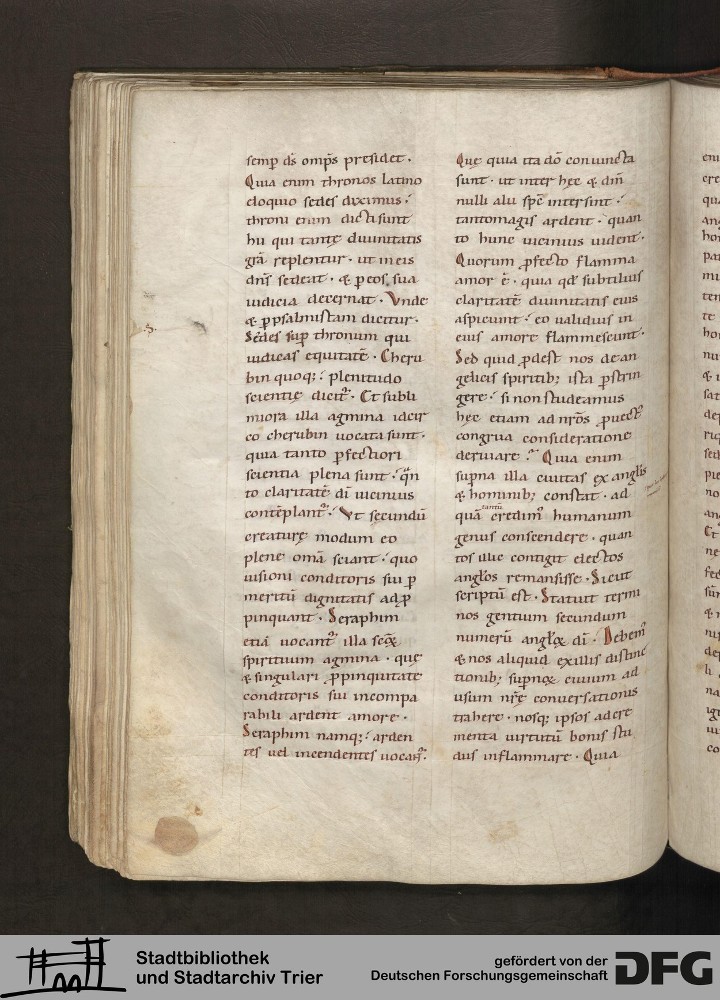 semp ds omps presidet.
Quia enim thronos latino
eloquio sedes diximus.
throni enim dicti sunt
hii qui tantę diuinitatis
gra replentur. ut in eis
dns sedeat. & p eos sua
iudicia decernat. Vnde
& p psalmistam dicitur.
Sedes sup thronum qui
iudicas equitatē. Cheru
bin quoq; plenitudo
scientię dicit. Et subli
miora illa agmina idcir
co cherubin uocata sunt.
quia tanto pfectiori
scientia plena sunt. qn
to claritatē di uicinius
contēplant. Vt secundū
creaturę modum eo
plene omia sciant. quo
uisioni conditoris sui p
meritū dignitatis adp
pinquant. Seraphim
etiā uocant illa scꝝ
spirituum agmina. quę
& singulari ppinquitate
conditoris sui incompa
rabili ardent amore.
Seraphim namq; arden
tes uel incendentes uocant.
Quę quia ita dō coniuncta
sunt. ut inter hęc & dm
nulli alii spē intersint.
tantomagis ardent. quan
to hunc uicinius uident.
Quorum pfecto flamma
amor ē. quia qd subtilius
claritatē diuinitatis eius
aspiciunt. eo ualidius in
eius amore flammescunt.
Sed quid pdest nos de an
gelicis spiritib; ista pstrin
gere. si non studeamus
hęc etiam ad nros puect
congrua consideratione
deriuare. Quia enim
supna illa ciuitas ex anglis
& hominib; constat. ad
quā tantū credim humanum
genus conscendere. quan
tos illic contigit electos
anglos remansisse. Sicut
scriptū est. Statuit termi
nos gentium secundum
numerū anglꝝ di. Debem
& nos aliquid ex illis distinc
tionib; supnoꝝ ciuium ad
usum nrę conuersationis
trahere. nosq; ipsos ad cre
menta uirtutū bonis stu
diis inflammare. Quia
Stadtbibliothek
und Stadtarchiv Trier
gefördert von der
Deutschen Forschungsgemeinschaft
DFG